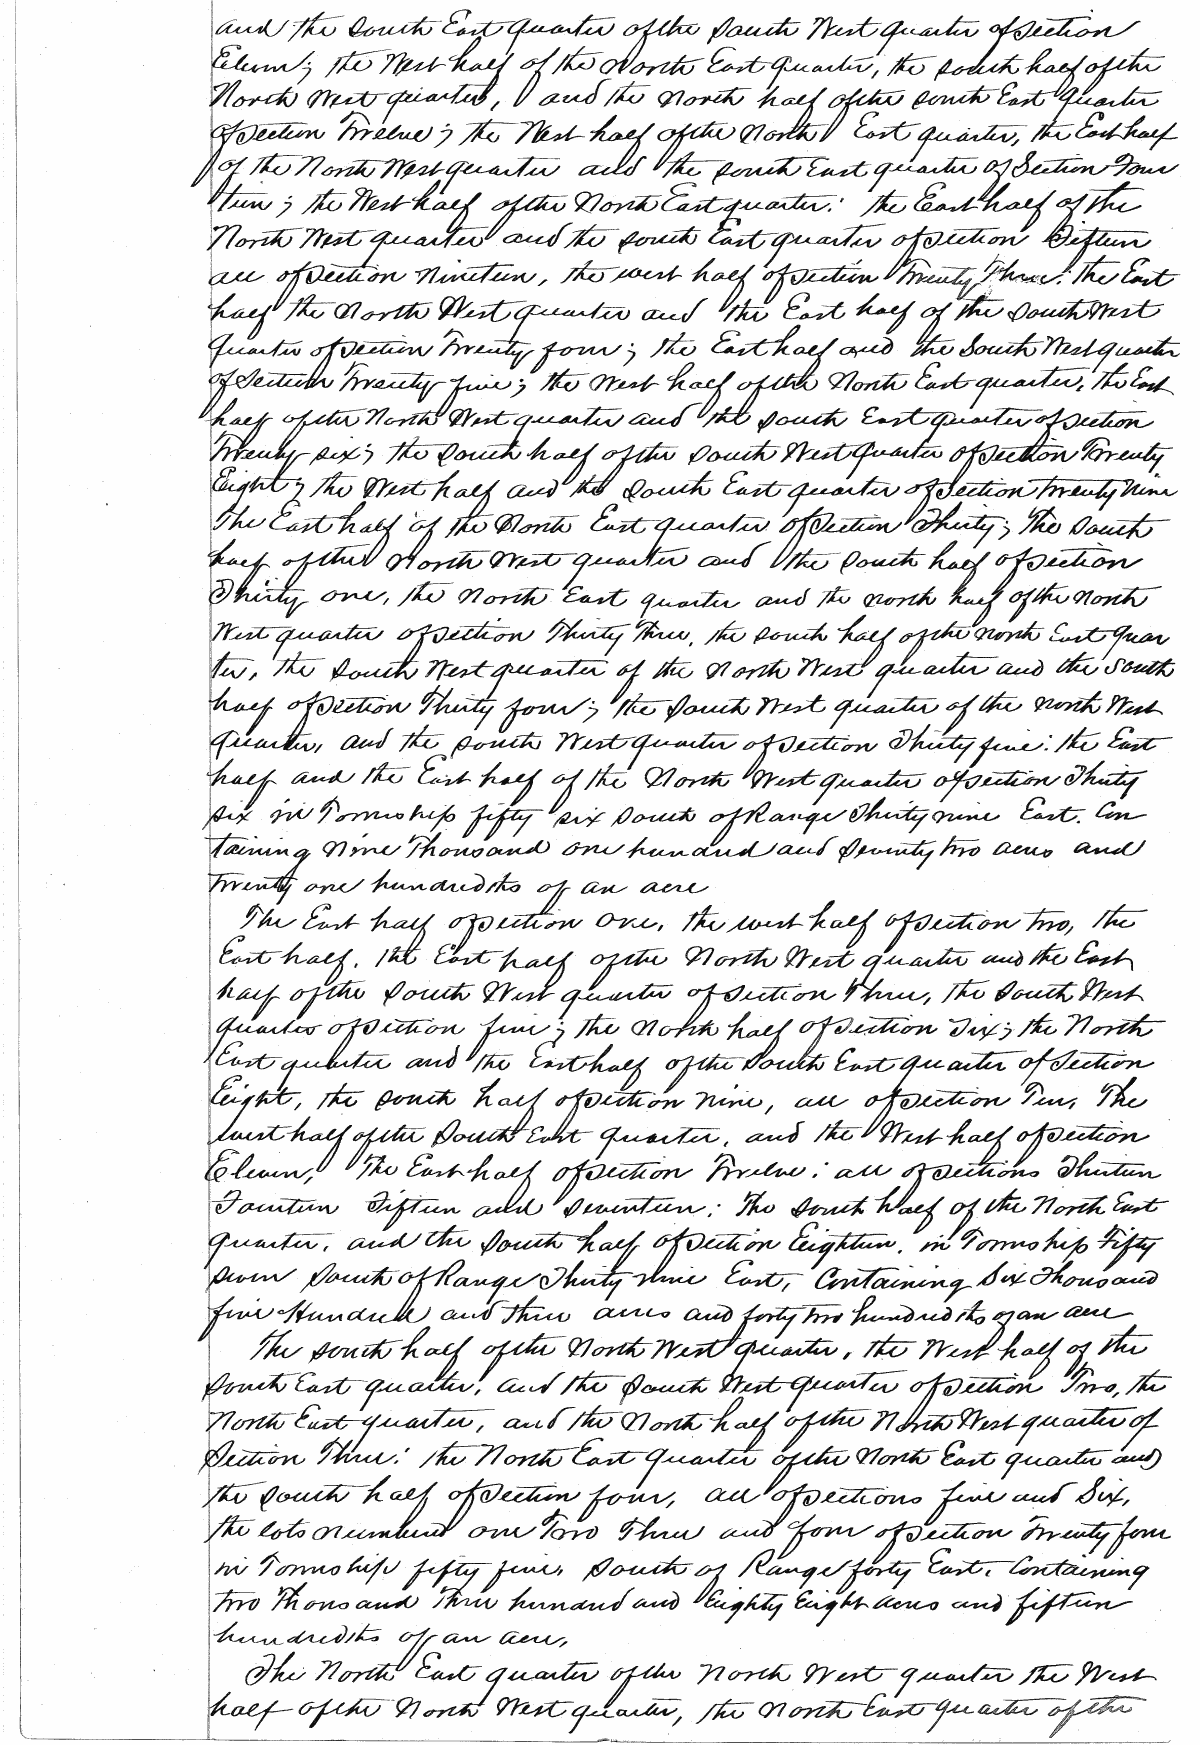 and the South East quarter of the South West quarter of Section
Eleven; the West half of the North East quarter, the South half of the
North West quarter, and the North half of the South East quarter
of Section Twelve; the West half of the North East quarter, the East half
of the North West quarter and the South East quarter of Section Four
teen; the West half of the North East quarter: the East half of the
North West quarter and the South East quarter of Section Fifteen
all of Section Nineteen, the west half of Section Twenty Three: the East
half the North West quarter and the East half of the South West
quarter of Section Twenty four; the East half and the South West quarter
of Section Twenty five; the West half of the North East quarter, the East
half of the North West quarter and the South East quarter of Section
Twenty six; the South half of the South West quarter of Section Twenty
Eight; the West half and the South East quarter of Section Twenty Nine
The East half of the North East quarter of Section Thirty; The South
half of the North West quarter and the South half of Section
Thirty one, the North East quarter and the north half of the North
West quarter of Section Thirty Three, the South half of the north East Quar
ter, the South West quarter of the North West quarter and the South
half of Section Thirty four; the South West quarter of the north West
quarter, and the South West quarter of Section Thirty five: the East
half and the East half of the North West quarter of Section Thirty
six in Township fifty six South of Range Thirty nine East. Con
taining Nine Thousand one hundred and Seventy two acres and
twenty one hundredths of an acre
The East half of Section One, the west half of Section two, the
East half, the East half of the North West quarter and the East
half of the South West quarter of Section Three, the South West
quarter of Section five; the North half of Section Six; the North
East quarter and the East half of the South East quarter of Section
Eight, the South half of Section Nine, all of Section Ten, The
west half of the South East quarter, and the West half of Section
Eleven, The East half of Section Twelve: all of Sections Thirteen
Fourteen Fifteen and Seventeen: The South half of the North East
quarter, and the South half of Section Eighteen, in Township Fifty
Seven South of Range Thirty nine East, Containing Six Thousand
five Hundred and three acres and forty two hundredths of an acre
The South half of the North West quarter, the West half of the
South East quarter, and the South West quarter of Section Two, the
North East quarter, and the North half of the North West quarter of
Section Three: the North East quarter of the North East quarter and
the South half of Section four, all of Sections five and Six,
the lots numbered one Two Three and four of Section Twenty four
in Township fifty five, South of Range forty East. Containing
two Thousand Three hundred and Eighty Eight acres and fifteen
hundredths of an acre,
The North East quarter of the North West quarter the West
half of the North West quarter, the North East quarter of the